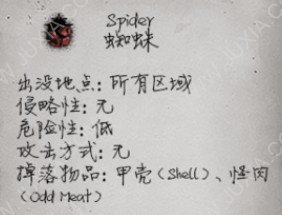 Spider
蜘蛛
出没地点：所有区域
侵略性：无
危险性：低
攻击方式：无
掉落物品：甲壳（Shell）、怪肉
（Odd Meat）